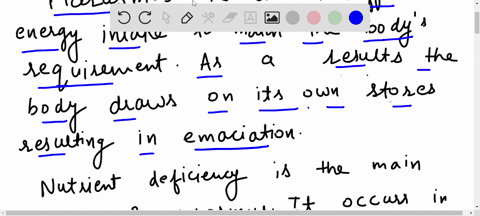 energy intake to the body's
requirement. As a results the
body draws on its own stores
resulting in emaciation.
Nutrient deficiency is the main
It occurs in